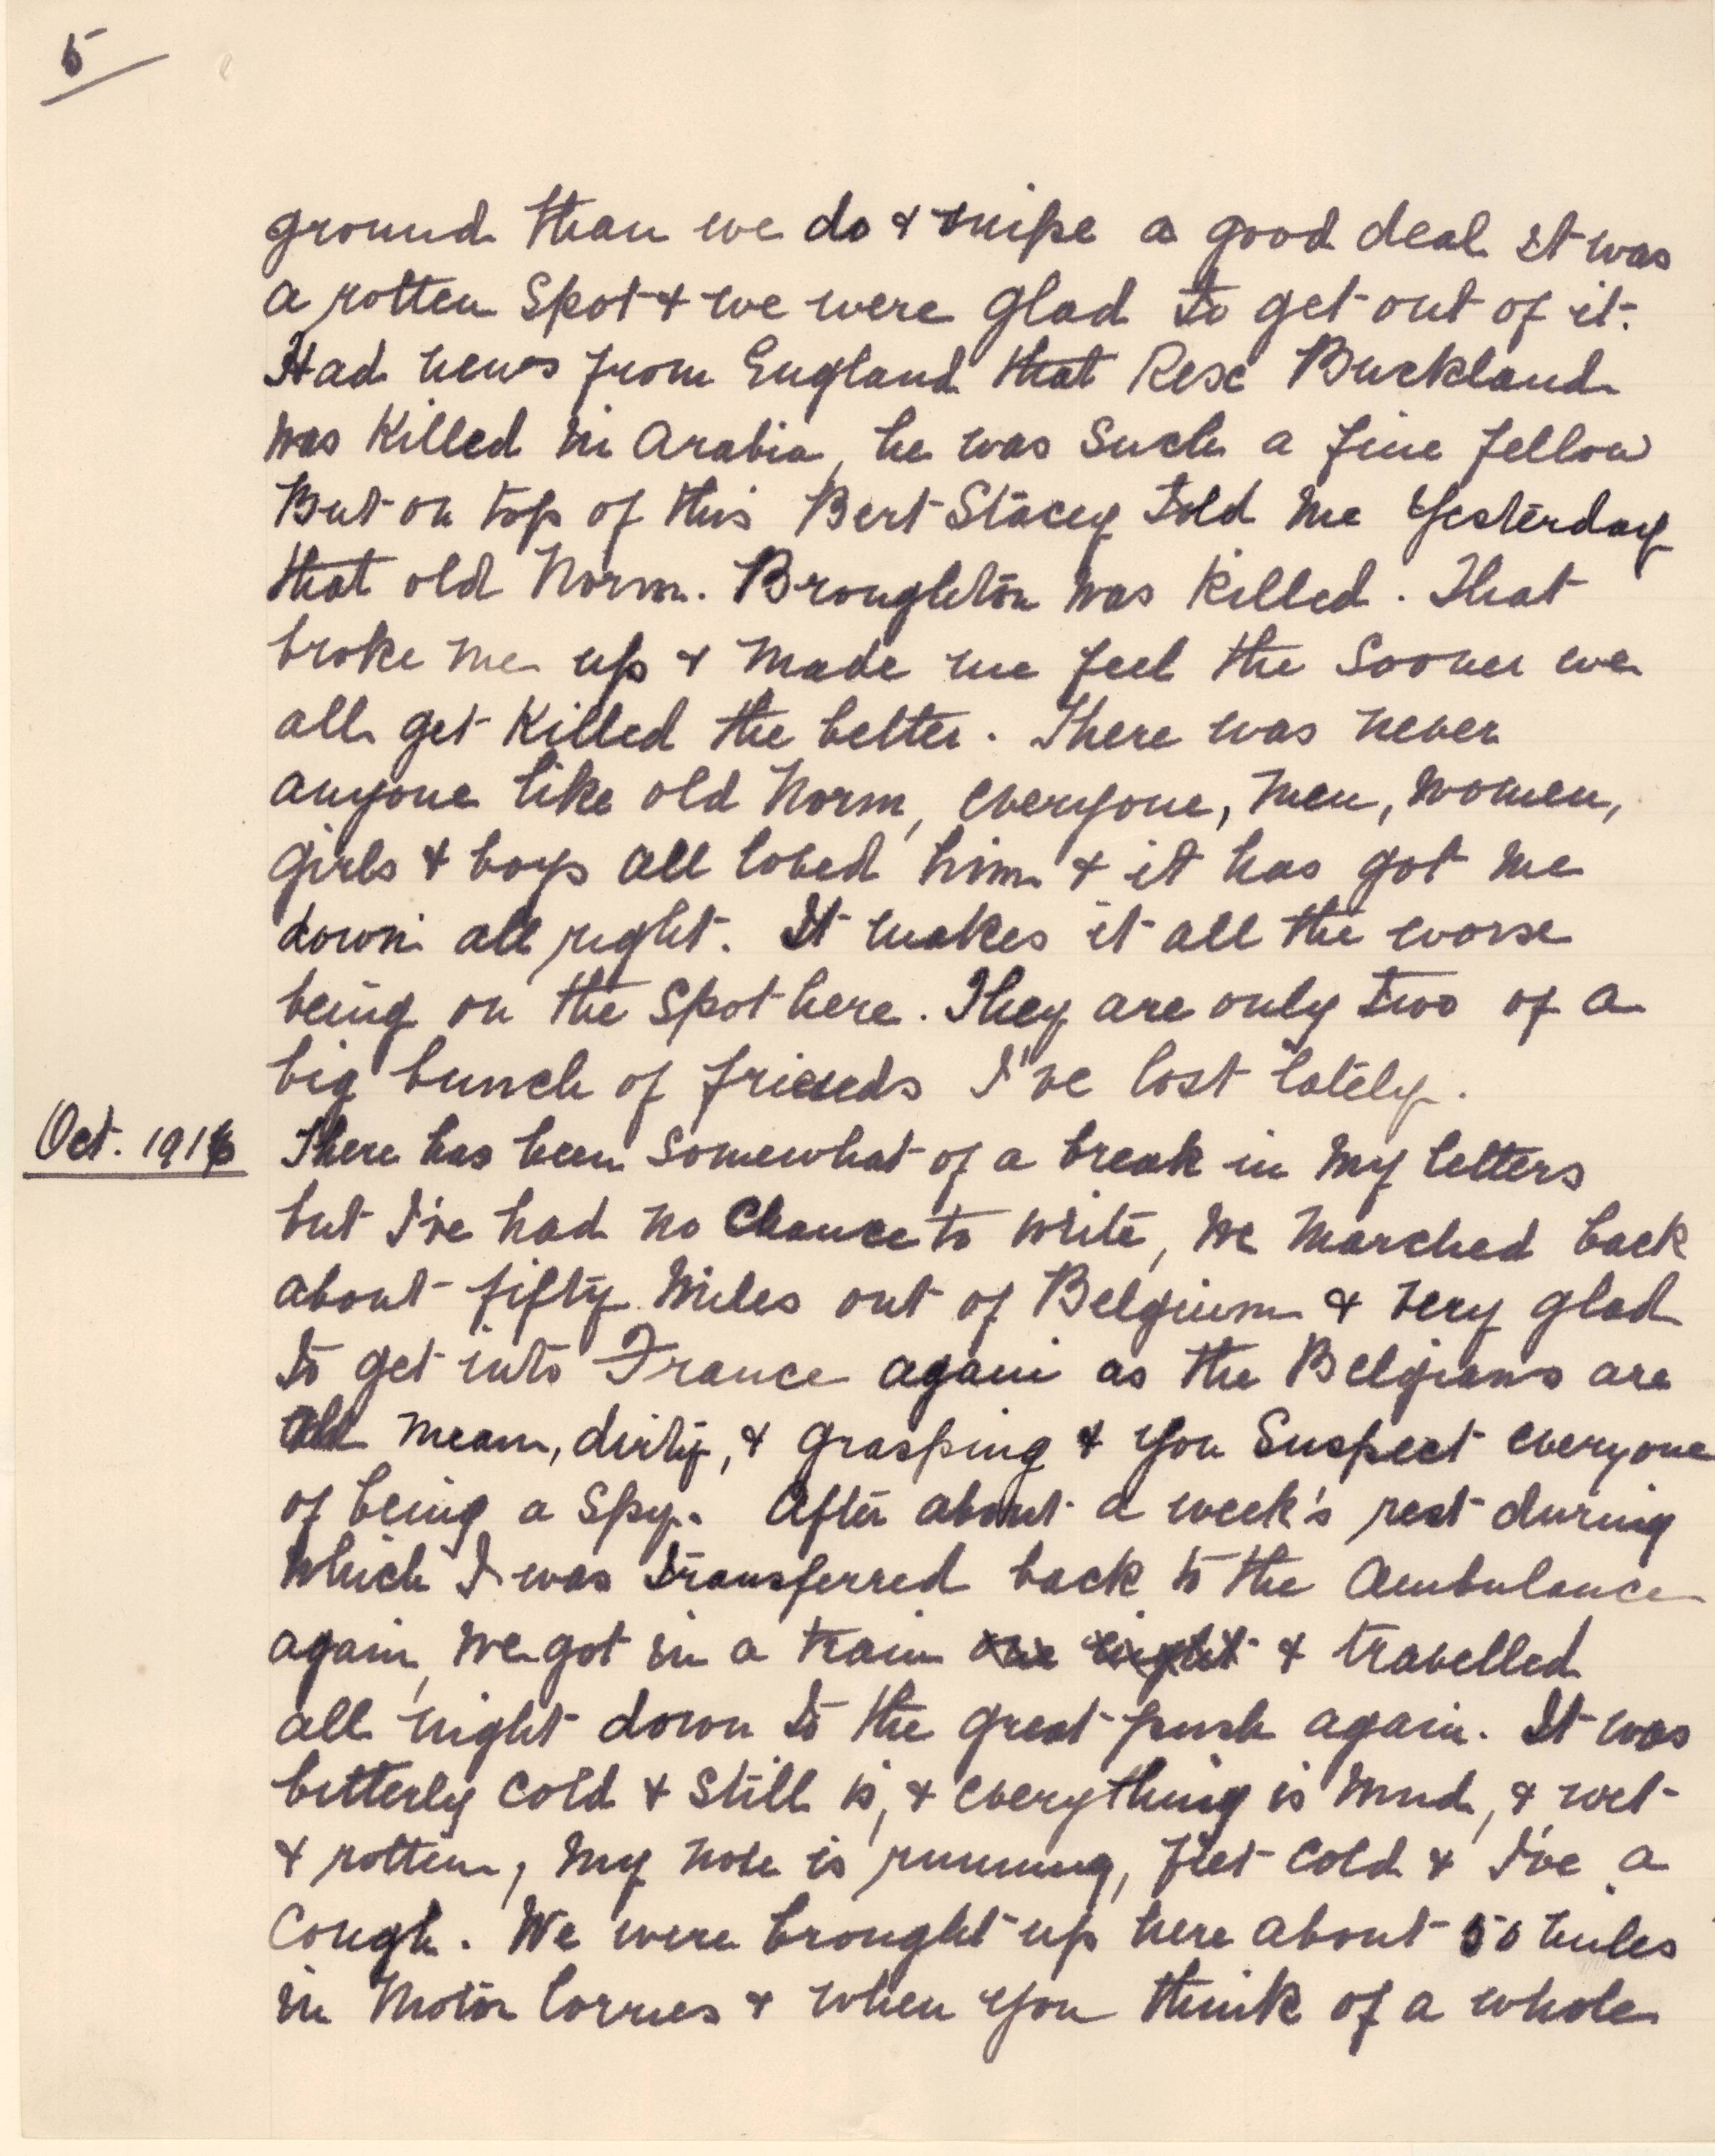 5
ground than we do & snipe a good deal It was
a rotten spot & we were glad to get out of it.
Had news from England that Buckland
was killed in Arabia, he was such a fine fellow
But on top of this Bert Stacey told me yesterday
that old Norm. Broughton was killed. That
broke me up & made me feel the sooner we
all get killed the better. There was never
anyone like old Norm, everyone, men, women,
girls & boys all loved him & it has got me
down all right. It makes it all the worse
being on the spot here. They are only two of a
big bunch of friends I've lost lately.
Oct. 1916 There has been somewhat of a break in my letters
but I've had no chance to write, we marched back
about fifty miles out of Belgium & very glad
to get into France again as the Belgians are
all mean, dirty, & grasping & you suspect everyone
of being a spy. After about a week's rest during
which I was transferred back to the Ambulance
again, we got in a train one night & travelled
all night down to the great push again. It was
bitterly cold & still is, & everything is mud, & wet
& rotten, my nose is running, feet cold & I've a
cough. We were brought up here about 50 miles
in motor lorries & when you think of a whole